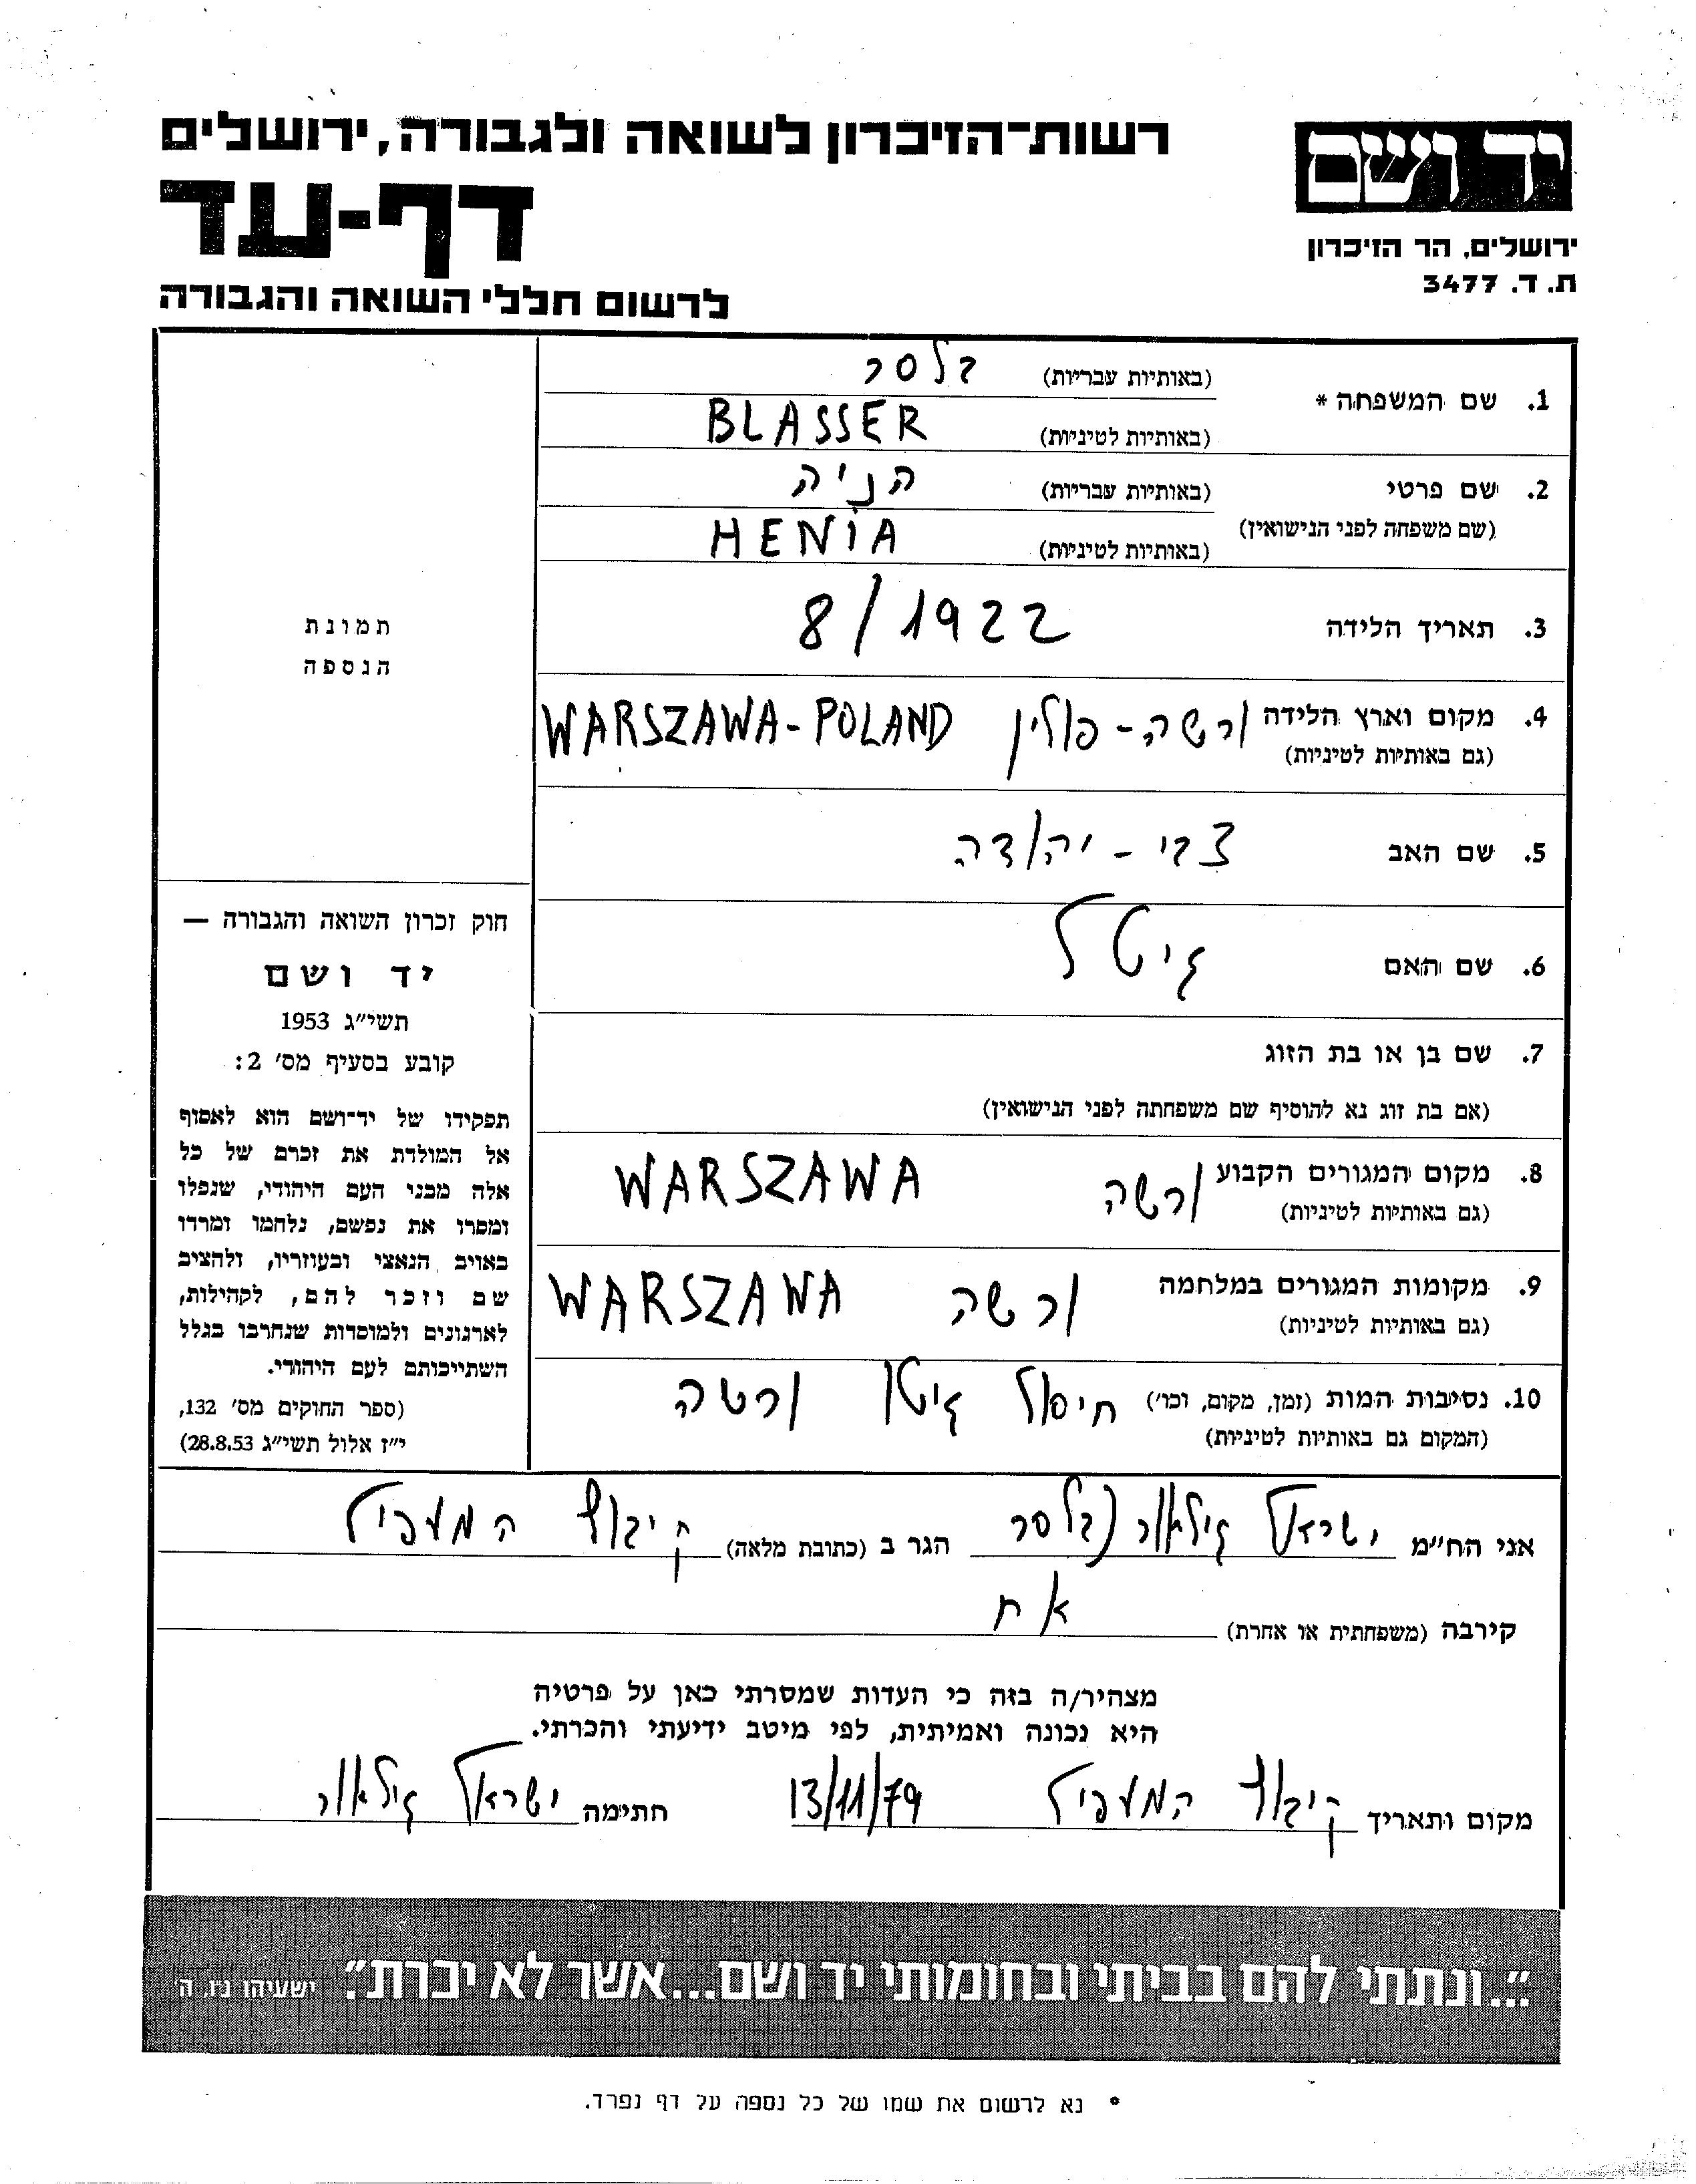 רשות־הזיכרון לשואה ולגבורה, ירושלים
דף-עד
לרשום חללי השואה והגבורה
יד ושם
ירושלים, הר הזיכרון
ת. ד. 3477
1. שם המשפחה * (באותיות עבריות) בלסר
(באותיות לטיניות) BLASSER
2. שם פרטי (באותיות עבריות) הניה
(שם משפחה לפני הנישואין) (באותיות לטיניות) HENIA
3. תאריך הלידה 8/1922
4. מקום וארץ הלידה ורשה - פולין WARSZAWA - POLAND
(גם באותיות לטיניות)
5. שם האב צבי - יהודה
6. שם האם גיטל
7. שם בן או בת הזוג
(אם בת זוג נא להוסיף שם משפחתה לפני הנישואין)
8. מקום המגורים הקבוע ורשה WARSZAWA
(גם באותיות לטיניות)
9. מקומות המגורים במלחמה ורשה WARSZAWA
(גם באותיות לטיניות)
10. נסיבות המות (זמן, מקום, וכו') חיסול גיטו ורשה
(המקום גם באותיות לטיניות)
תמונת
הנספה
חוק זכרון השואה והגבורה —
יד ושם
תשי"ג 1953
קובע בסעיף מס' 2:
תפקידו של יד־ושם הוא לאסוף
אל המולדת את זכרם של כל
אלה מבני העם היהודי, שנפלו
ומסרו את נפשם, נלחמו ומרדו
באויב הנאצי ובעוזריו, ולהציב
שם וזכר להם, לקהילות,
לארגונים ולמוסדות שנחרבו בגלל
השתייכותם לעם היהודי.
(ספר החוקים מס' 132,
י"ז אלול תשי"ג 28.8.53)
אני הח"מ ישראל גילאור (בלסר) הגר ב (כתובת מלאה) קיבוץ המעפיל
קירבה (משפחתית או אחרת) אח
מצהיר/ה בזה כי העדות שמסרתי כאן על פרטיה
היא נכונה ואמיתית, לפי מיטב ידיעתי והכרתי.
מקום ותאריך קיבוץ המעפיל 13/11/79 חתימה ישראל גילאור
"...ונתתי להם בביתי ובחומותי יד ושם...אשר לא יכרת". ישעיהו נ"ו, ה'
* נא לרשום את שמו של כל נספה על דף נפרד.